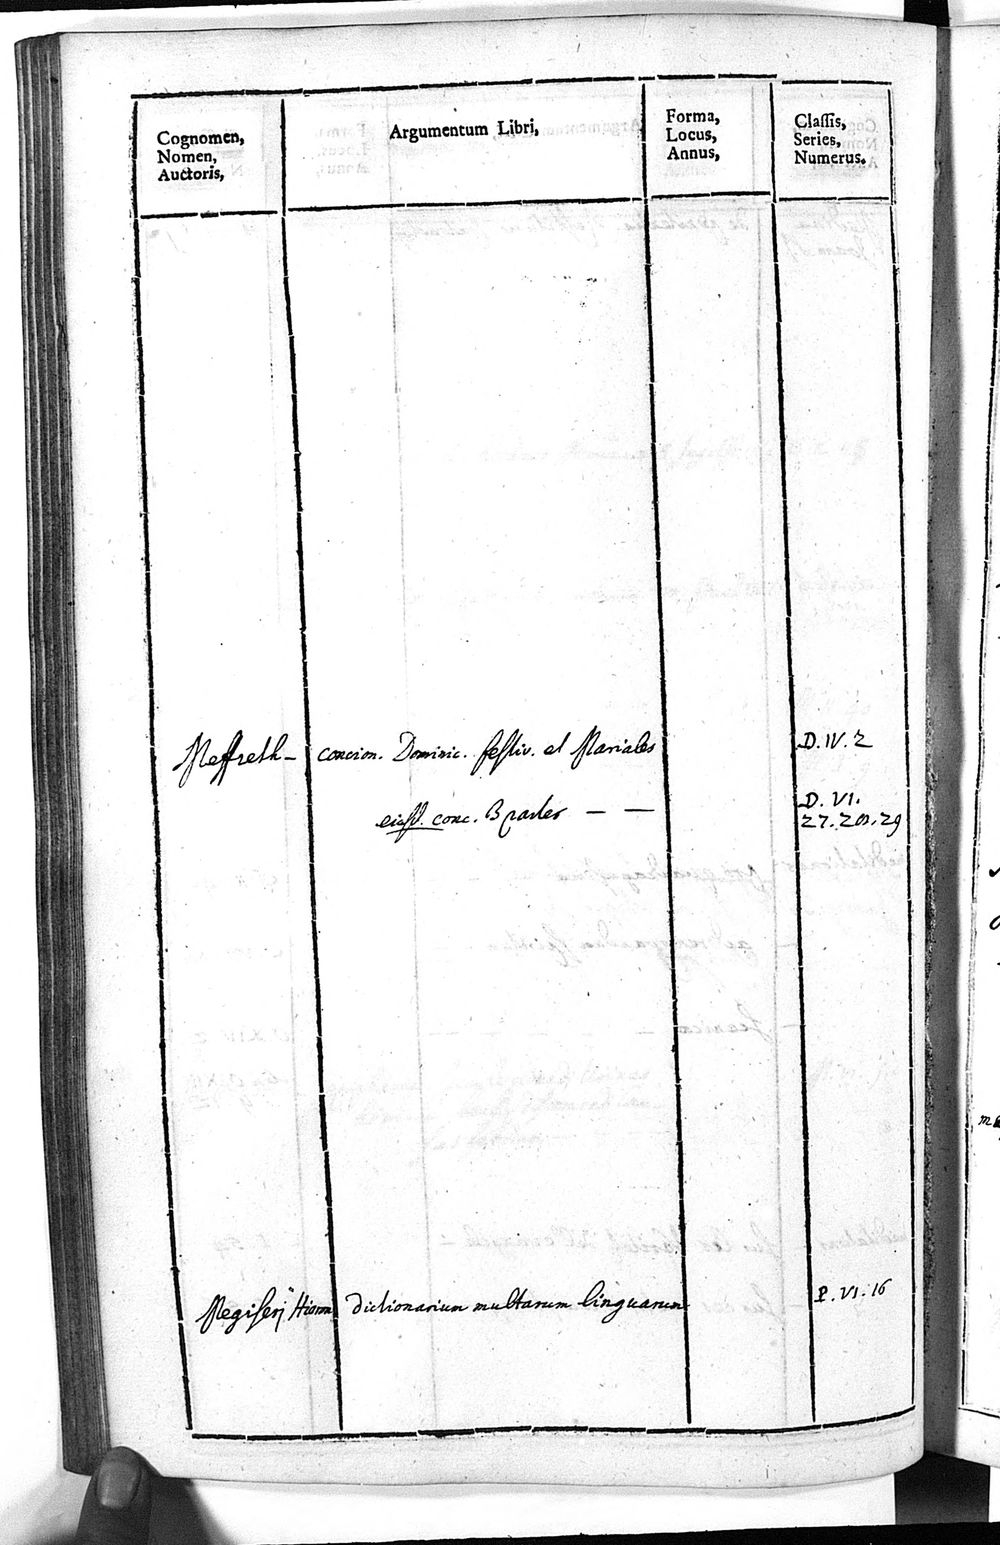 Cognomen,
Nomen,
Auctoris,
Argumentum Libri,
Forma,
Locus,
Annus,
Classis,
Series,
Numerus.
Meffreth - concion. Dominic. festiv. et Mariales D. IV. 2
eiusd. conc. — — D. VI.
27. 28. 29
Megiseri Hieron dictionarium multarum linguarum P. VI. 16